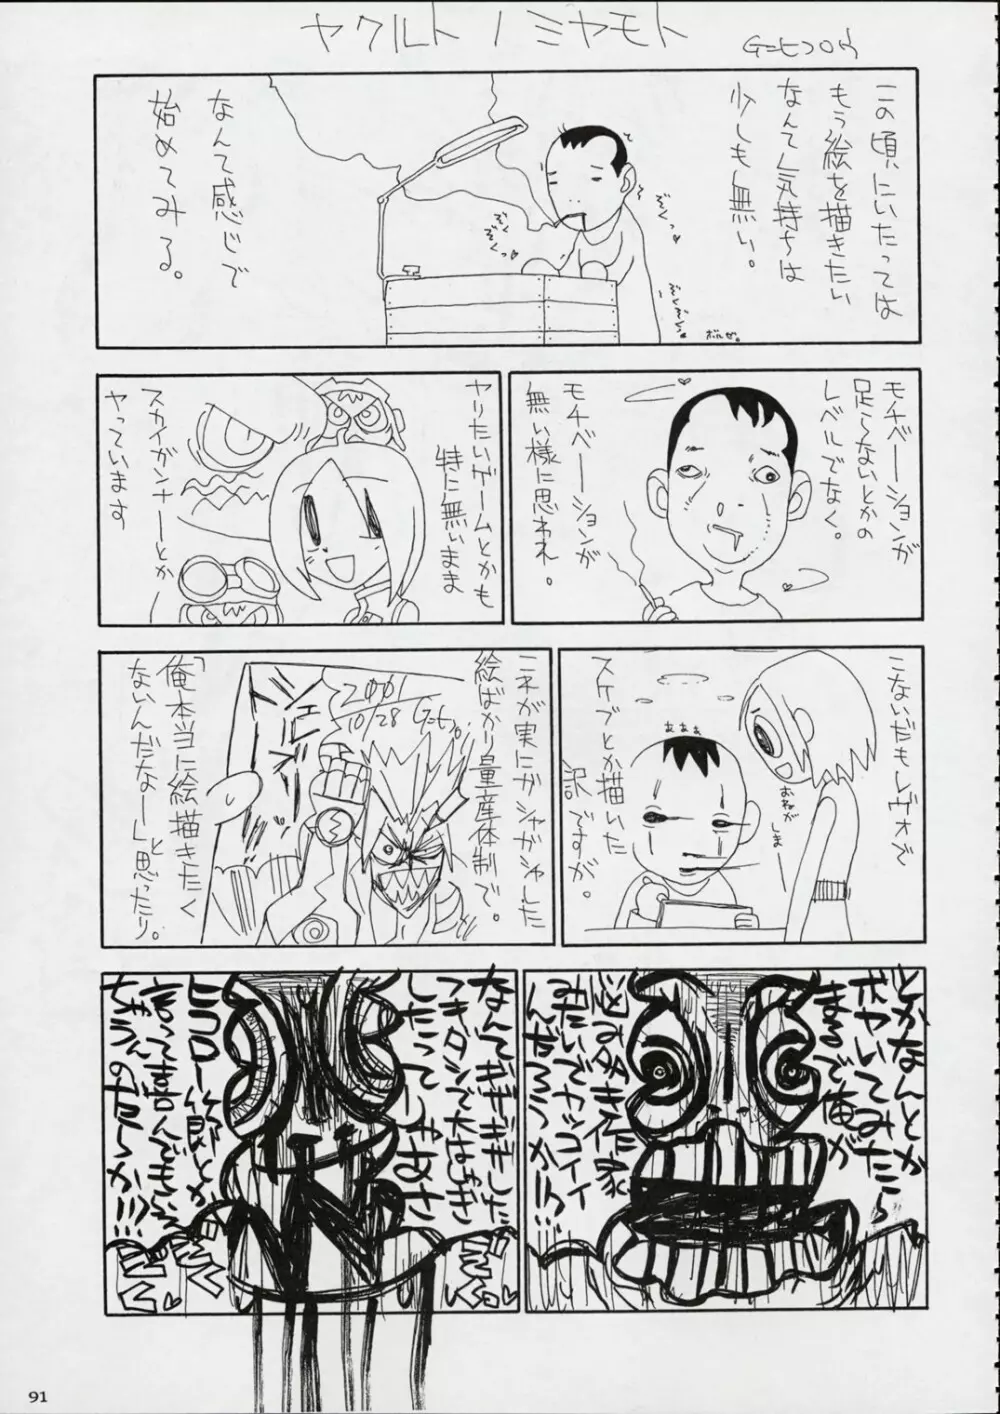 ヤクルトノミヤモト
この頃にいたっては
もう絵を描きたい
なんて気持ちは
少しも無い。
なんて感じで
始めてみる。
ぞくっ
ぞくぞくっ
ぞくぞくっ
ボルゼ。
モチベーションが
足らないとかの
レベルでなく。
モチベーションが
無い様に思われ。
ヤリたいゲームとかも
特に無いまま
スカイガンナーとか
ヤっています
こないだもレヴォで
スケブとか描いた
訳ですが。
ぁぁぁ
おねが
しまー
これが実にガシャガシャした
絵ばかり量産体制で。
「俺本当に絵描きたく
ないんだなー」と
思ったり。
2001
10/28
とかなんとか
ボヤいてみたら
まるで俺が
悩み多き作家
みたいでカッコイイ
んだろうか!!!
なんてギザギザした
つきダシで大はしゃぎ
したって
ヒコロー節とか
言って喜んで
ちゃうのだろうか!!!
91